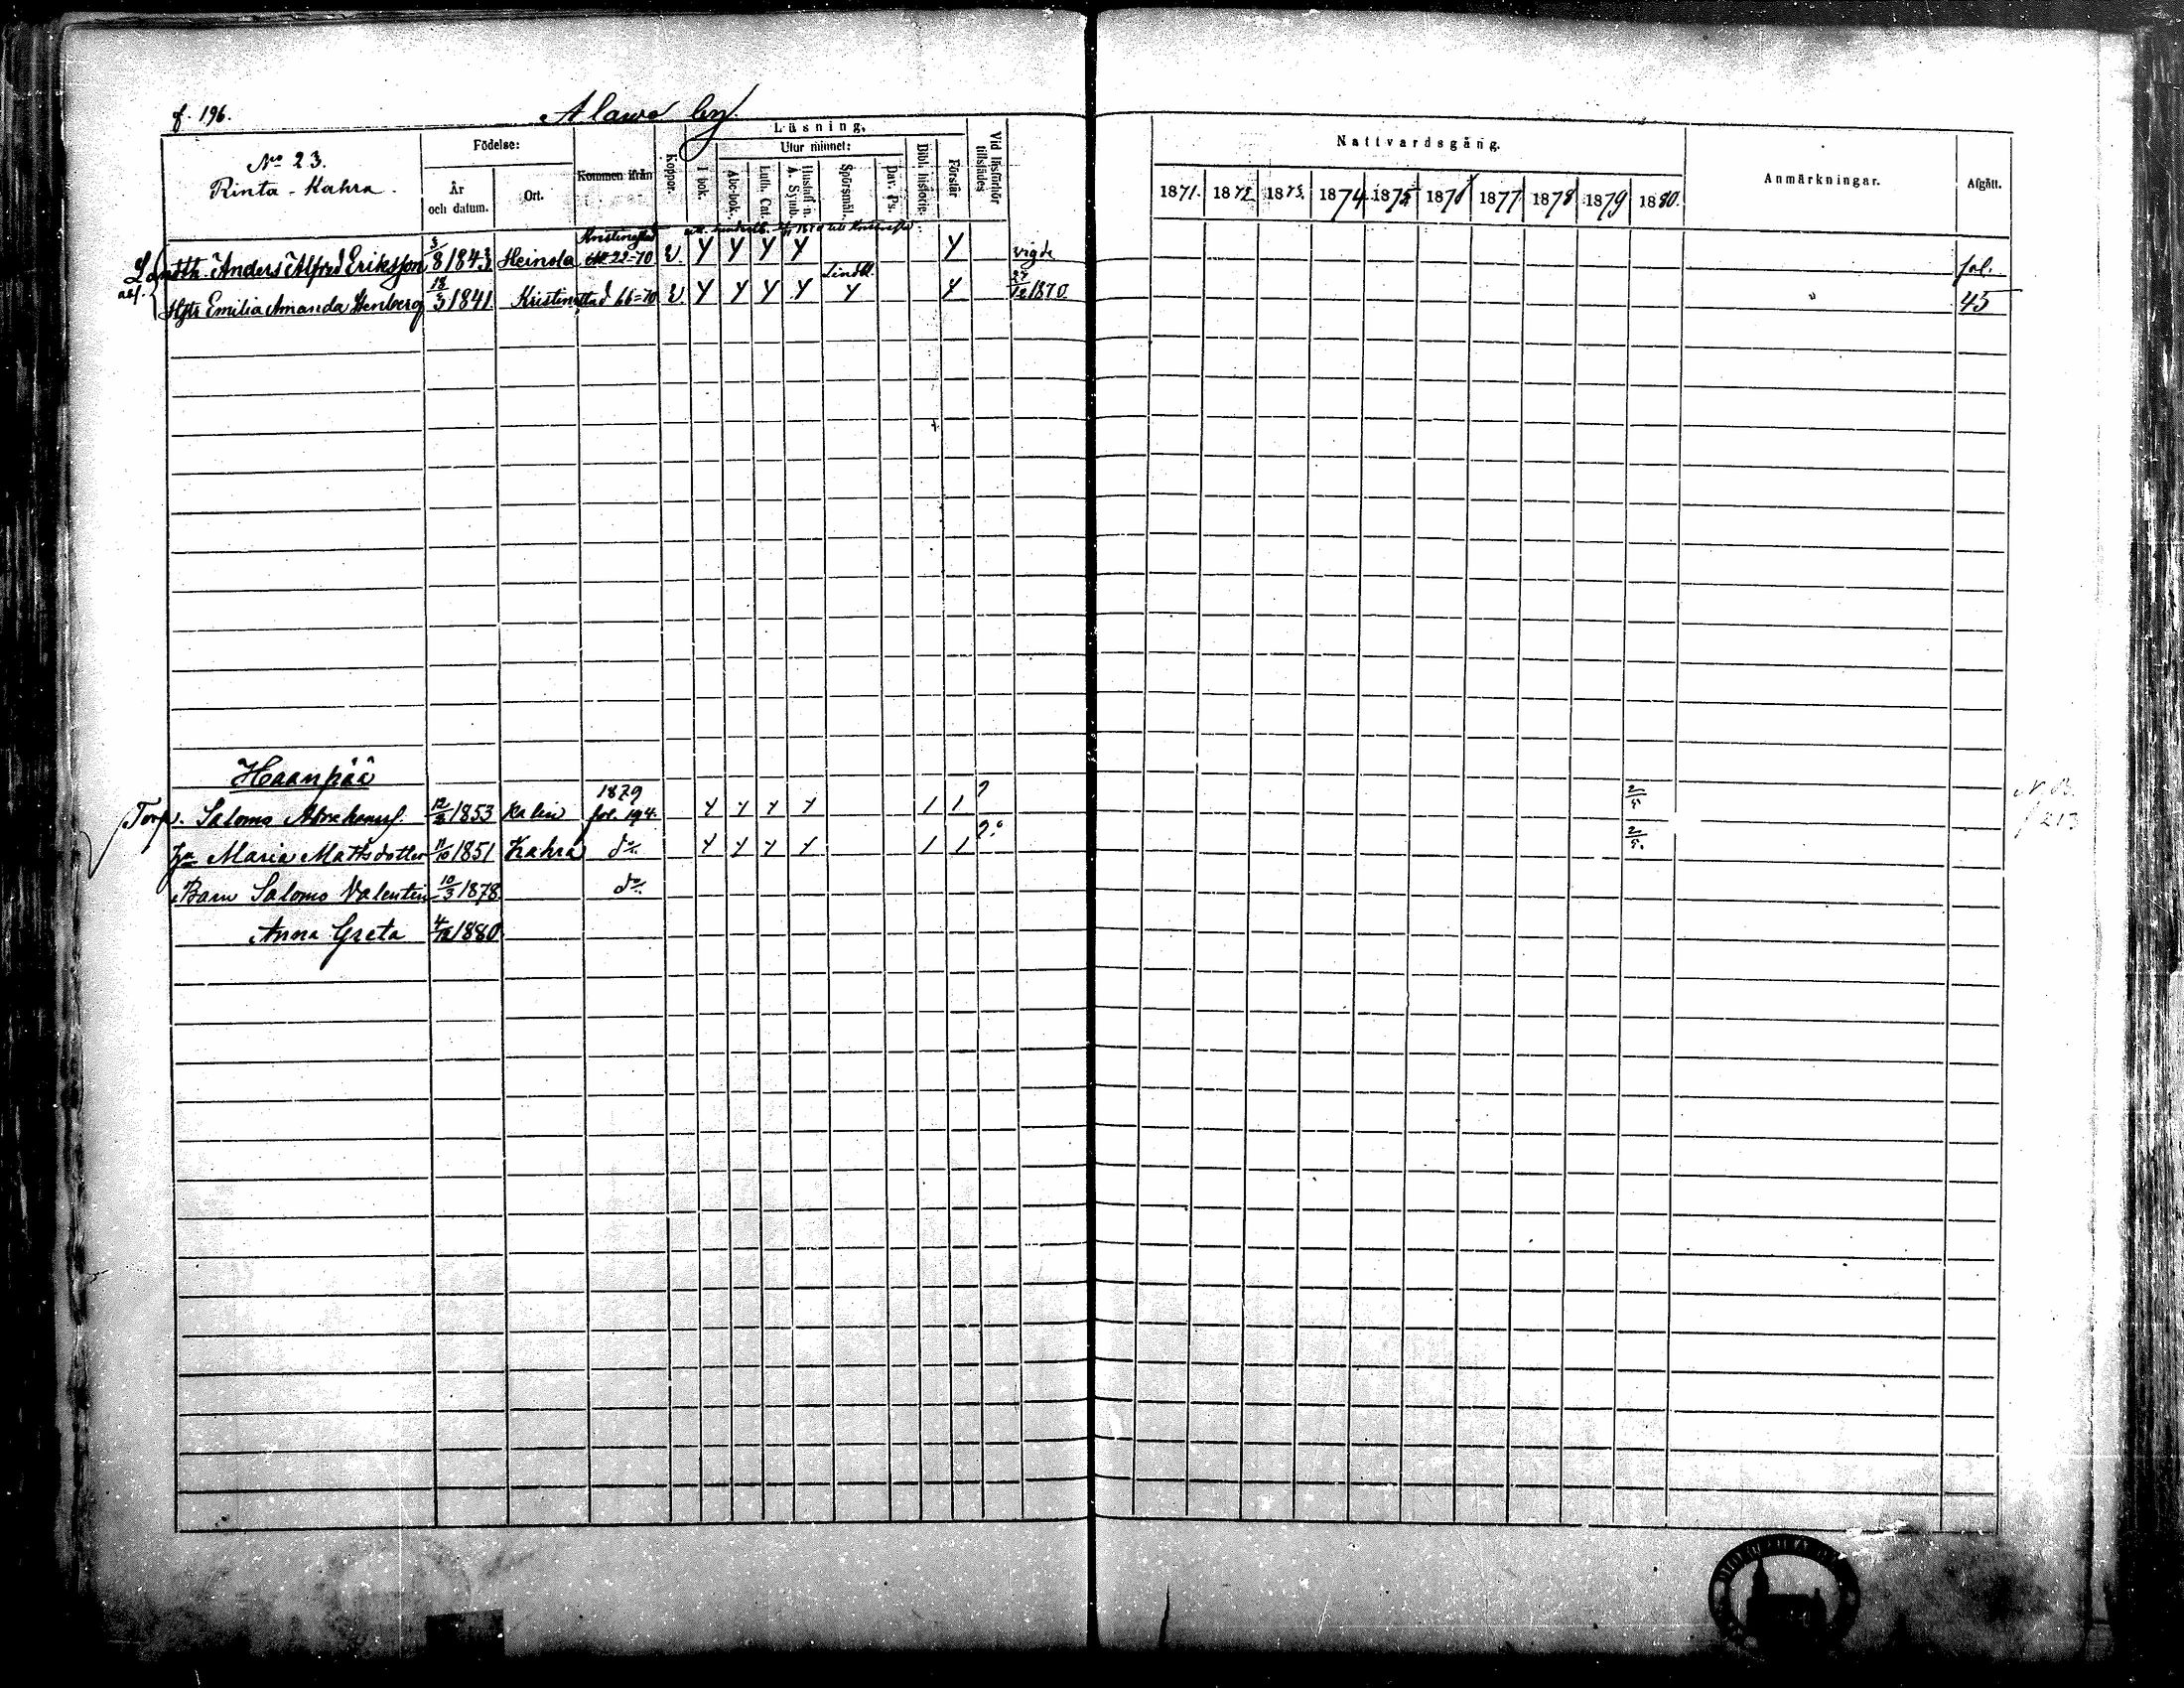 f. 196.
Alawo by.
No 23.
Rinta-Kahra.
Födelse:
År och datum.
Ort.
Kommen ifrån
Koppor.
Läsning.
I bok.
Utur minnet:
Abc-bok.
Luth. Cat.
Hustafl. n. A. Symb.
Spörsmål.
Dav. Ps.
Bibl. historie.
Förstår
Vid läsförhör tillstädes
Nattvardsgång.
1871. 1872 1873. 1874 1875 1876 1877 1878 1879 1880.
Anmärkningar.
Afgått.
Landth. Anders Alfred Eriksson 3/8 1843 Heinola Kristinestad 22-70 v y y y y y vigde fol.
Hstr Emilia Amanda Stenberg 18/3 1841 Kristinestad 66-70 v y y y y Lindbl. y y 27/12 1870 45
Haanpää
Torp. Salomo Abrahamss. 12/2 1853 Kalin 1879 fol. 194. y y y y 1 1 2/5
Hu Maria Mattsdotter 11/10 1851 Kahra do y y y y 1 1 2/5.
Barn Salomo Valentin 10/3 1878. do
Anna Greta 4/12 1880
N. B.
f 213